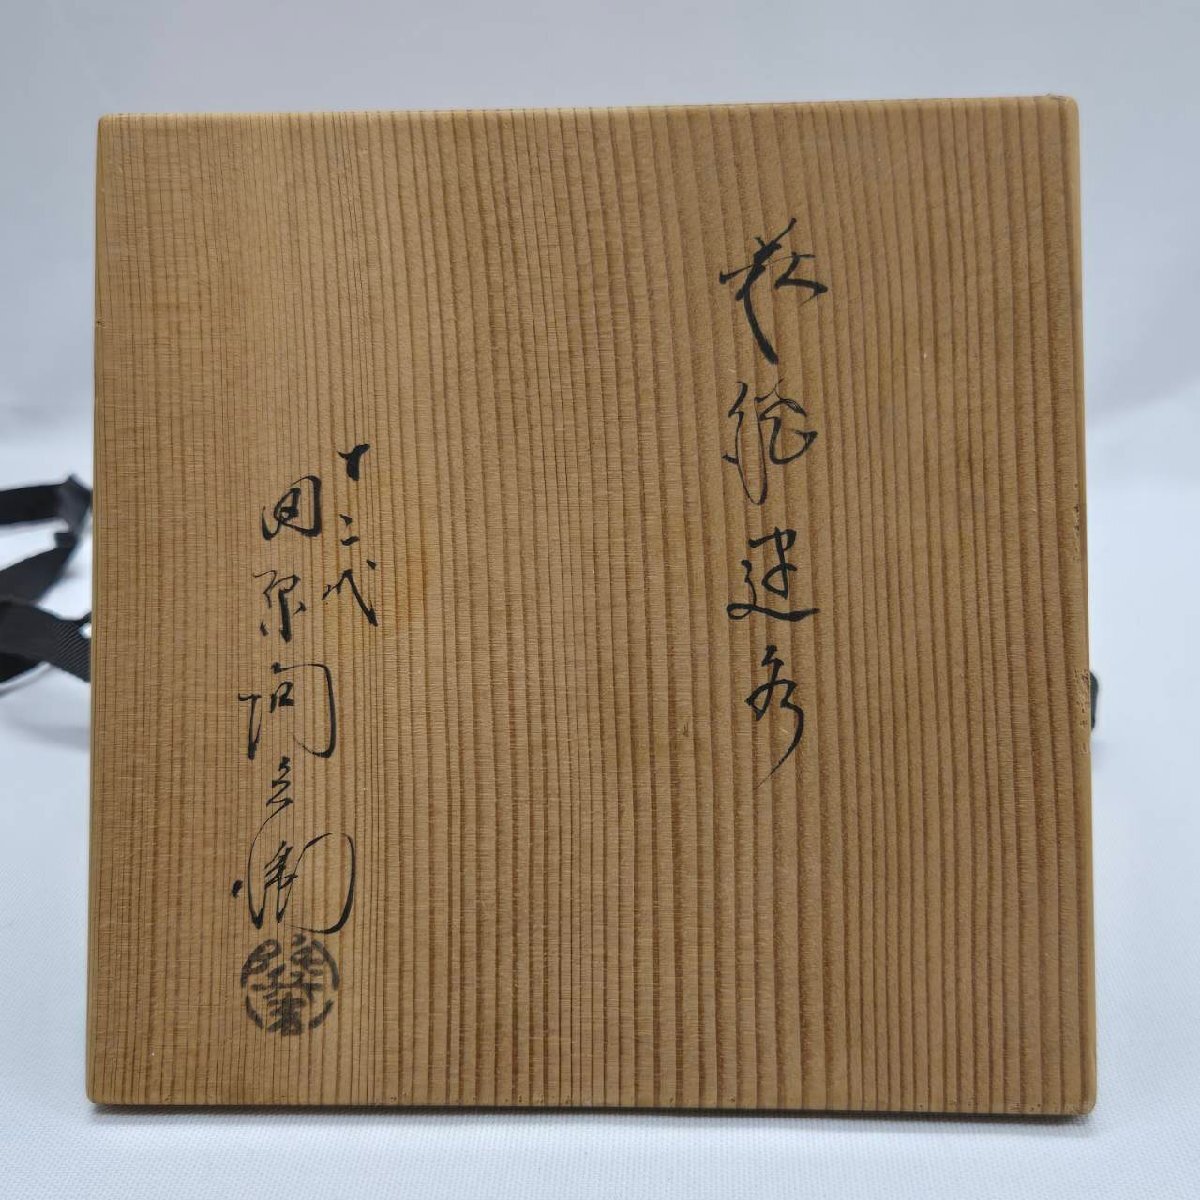 萩建水
十二代
田原陶兵衛